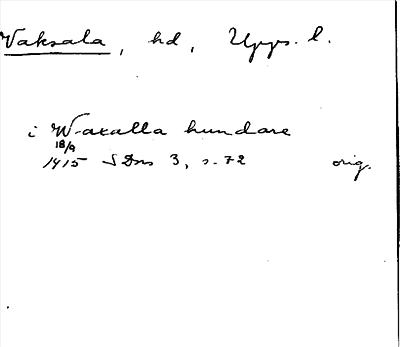 Vaksala, hd, Upps. l.
i Waxalla hundare
18/9
1415 SDns 3, s. 72 orig.